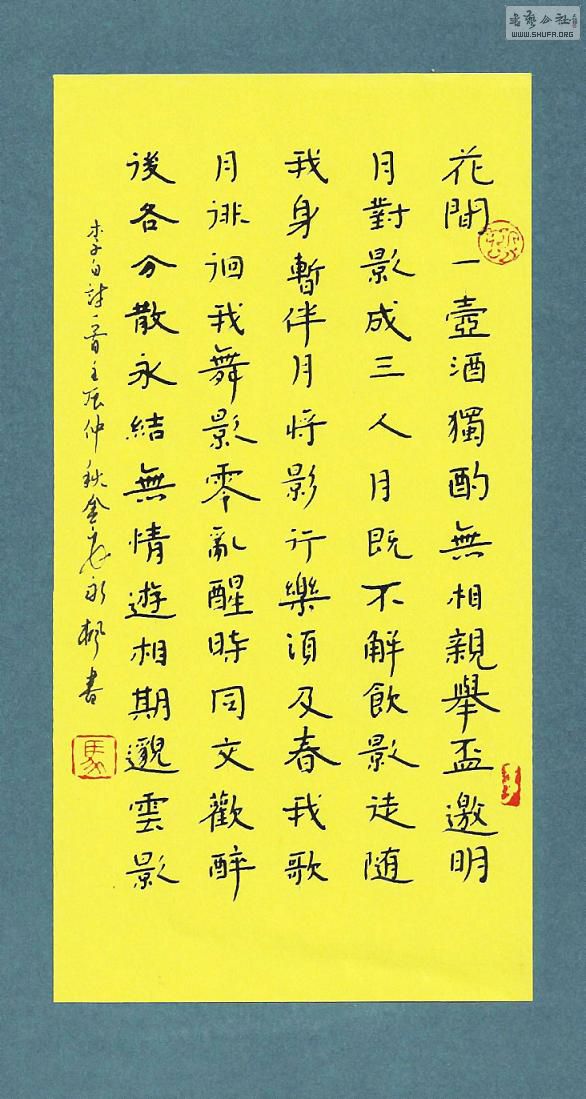 花間一壺酒獨酌無相親舉盃邀明
月對影成三人月既不解飲影徒随
我身暫伴月将影行樂須及春我歌
月徘徊我舞影零亂醒時同交歡醉
後各分散永結無情遊相期邈雲影
李白詩一首壬辰仲秋金永楓書
馬
書藝公社
WWW.SHUFA.ORG